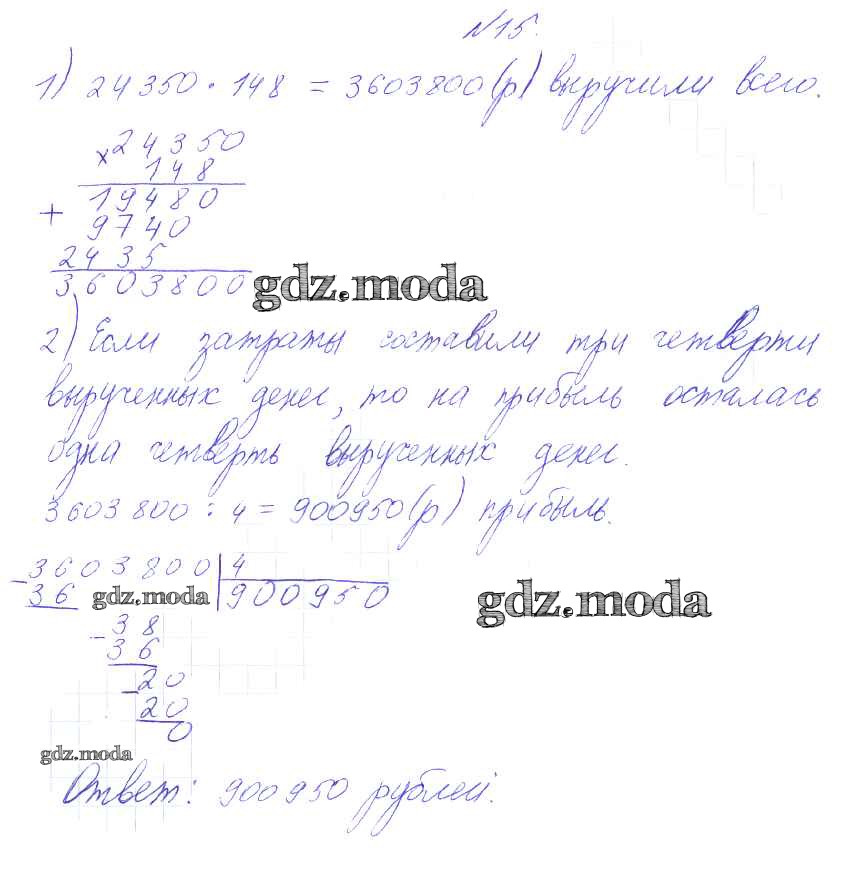 №15.
1) 24350 · 148 = 3603800 (р) выручили всего.
× 24350
148
+ 19480
9740
2435
3603800
gdz.moda
2) Если затраты составили три четверти
вырученных денег, то на прибыль осталась
одна четверть вырученных денег.
3603800 : 4 = 900950 (р) прибыль.
- 3603800 | 4
36 gdz.moda 900950
gdz.moda
- 38
36
- 20
20
0
gdz.moda
Ответ: 900950 рублей.